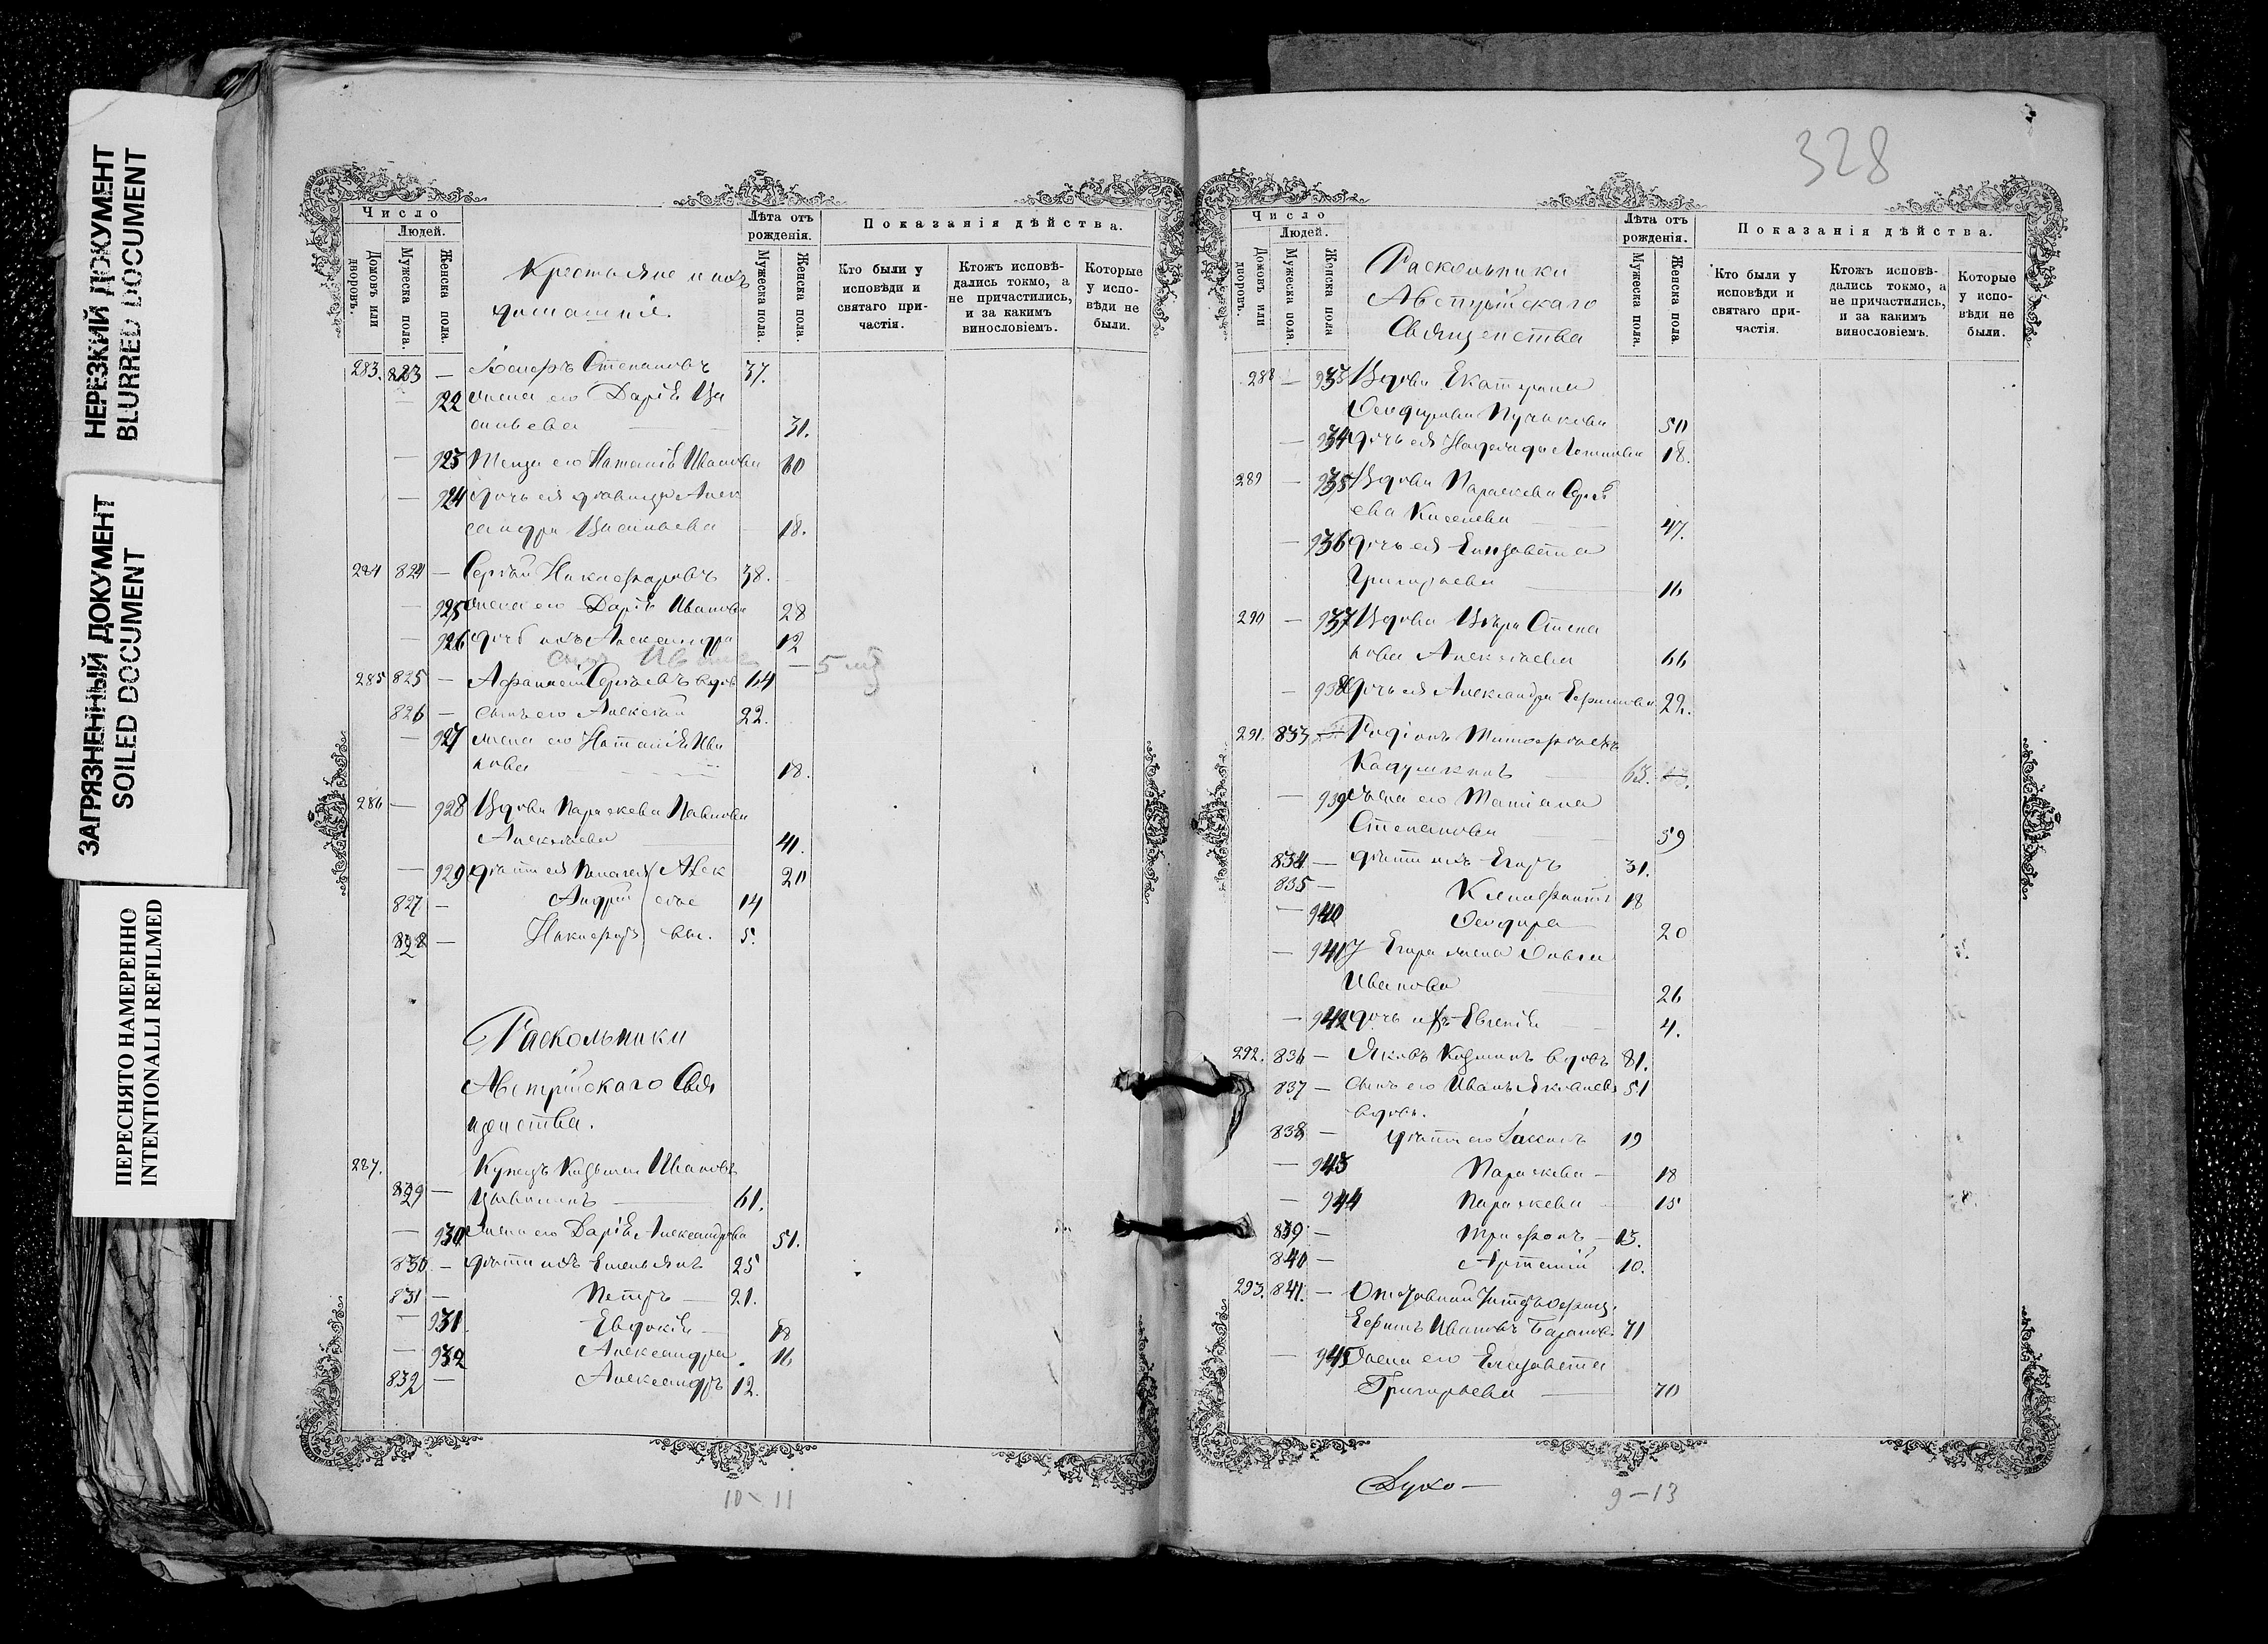 НЕРЕЗКИЙ ДОКУМЕНТ
BLURRED DOCUMENT
ЗАГРЯЗНЕННЫЙ ДОКУМЕНТ
SOILED DOCUMENT
ПЕРЕСНЯТО НАМЕРЕННО
INTENTIONALLI REFILMED
Число
Людей.
Домовъ или дворовъ.
Мужеска пола.
Женска пола.
Крестьяне и ихъ
домашніе.
Лѣта отъ рожденія.
Мужеска пола.
Женска пола.
Показанія дѣйства.
Кто были у исповѣди и святаго при-частія.
Ктожъ исповѣ-дались токмо, а не причастились, и за какимъ винословіемъ.
Которые у испо-вѣди не были.
283. 823 — Степановъ 37.
— 922 жена его Дарія Ва
сильева 31.
— 923 Теща его Наталія Иванова 60
— 924 дочь ея дѣвица Алек
сандра Васильева 18.
284 824 — Сергѣй Никифоровъ 38.
— 925 жена его Дарія Иванова 28
— 926 дочь ихъ Александра 12
сынъ Иванъ — 5 м
285 825 — Афанасій Сергѣевъ вдов 64
826 — сынъ его Алексѣй 22.
— 927 жена его Наталія Ива
нова 18.
286 — 928 Вдова Параскева Павлова
Алексѣева 41.
— 929 дѣти ея Пелагея Алек 20
827 — Андрей сѣе 14
828 — Никифоръ вы. 5.
Раскольники
Австрійскаго Свя
щенства.
287. Купецъ Козьма Ивановъ
829 — 61.
— 930 Жена его Дарія Александрова 51.
830 — дѣти ихъ Емельянъ 25
831 — Петръ 21.
— 931 Евдокія 18
— 932 Александра 16
832 — Александръ 12.
10-11
328
Число
Людей.
Домовъ или дворовъ.
Мужеска пола.
Женска пола
Раскольники
Австрійскаго
Священства
Лѣта отъ рожденія.
Мужеска пола.
Женска пола.
Показанія дѣйства.
Кто были у исповѣди и святаго при-частія.
Ктожъ исповѣ-дались токмо, а не причастились, и за какимъ винословіемъ.
Которые у испо-вѣди не были.
288 — 933 Вдова Екатерина
Феодорова 50
— 934 дочь ея 18.
289 — 935 Вдова Параскева Сергѣ
ева Киселева 47.
— 936 дочь ея Елизавета
Григорьева 16
290 — 937 Вдова Вѣра Степа
нова Алексѣева 66
— 938 дочь ея Александра 22.
291. 833 — Родіонъ Тимофѣевъ
63.
— 939 Жена его Татіана
Степанова 59
834 — дѣти ихъ Егоръ 31.
835 — 18
— 940 Феодора 20
— 941 У Егора жена
Иванова 26
— 942 дочь ихъ Евгенія 4.
292. 836 — Яковъ Козминъ вдовъ 81.
837 — сынъ его Иванъ Яковлевъ 51
вдовъ.
838 — дѣти его 19
— 943 Параскева — 18
— 944 Параскева 15
839 — Трифонъ — 13.
840 — Артемій 10.
293. 841. — Отставной
Ефимъ Ивановъ Барановъ 71
— 945 Жена его Елизавета
Григорьева 70
Духо—
9-13